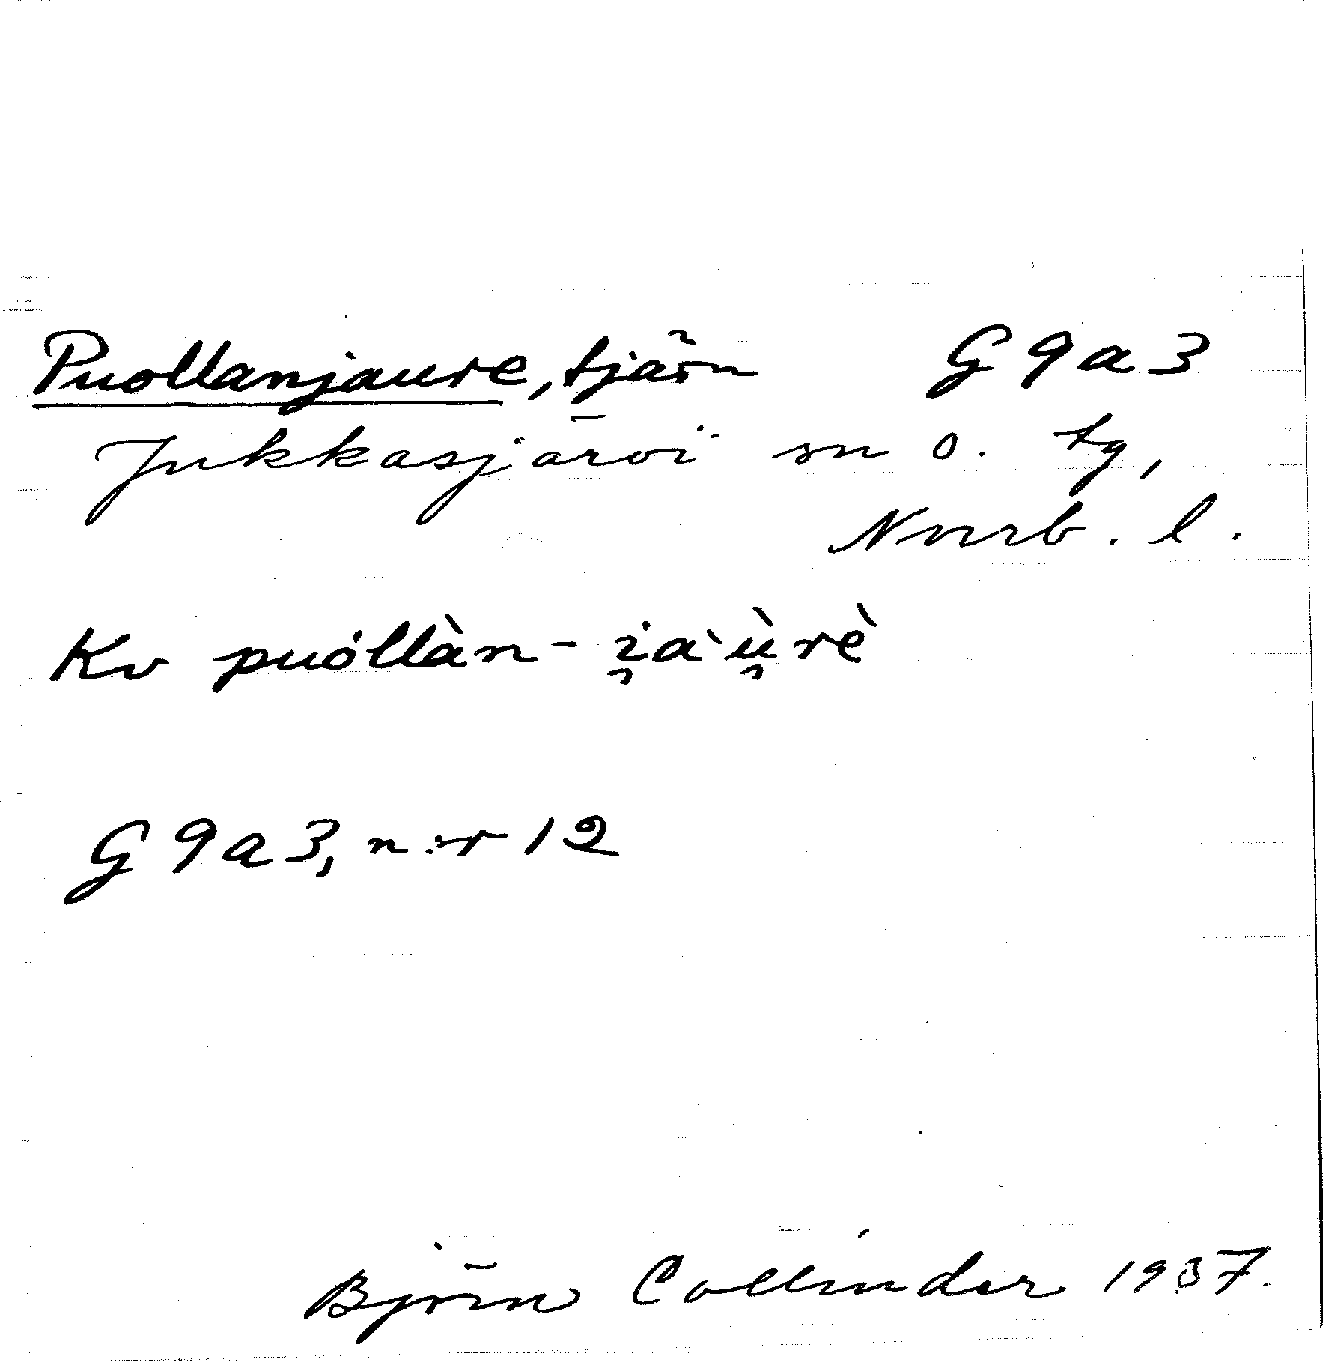 Puollanjaure, tjärn G 9 a 3
Jukkasjärvi sn o. tg,
Norrb. l.
Kv puòllàn- i̯a`ù̯rè
G 9 a 3, n:r 12
Björn Collinder 1937.